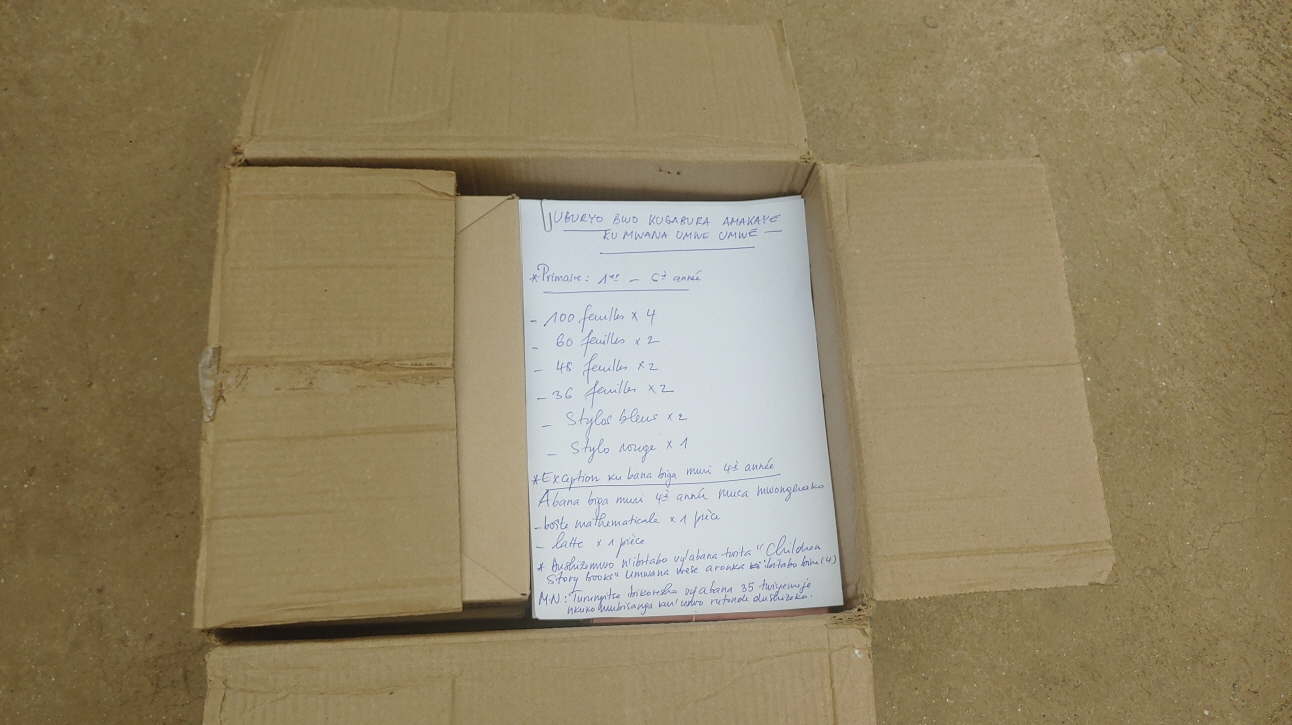 UBURYO BWO KUGABURA AMAKAYE
KU MWANA UMWE UMWE
*Primaire: 1ère - 6è année
- 100 feuilles x 4
- 60 feuilles x 2
- 48 feuilles x 2
- 36 feuilles x 2
- Stylos bleus x 2
- Stylo rouge x 1
*Exception ku bana biga muri 4è année
Abana biga muri 4è année muca mwongerako
- boîte mathematicale x 1 pièce
- latte x 1 pièce
* Dushizemwo n'ibitabo vy'abana twita "Children
Story books" umwana wese aronka ibitabo bine (4)
M.N: Turungitse ibikoresho vy'abana 35 twiyemeje
nkuko mubisanga kuri urwo rutonde dushizeko.